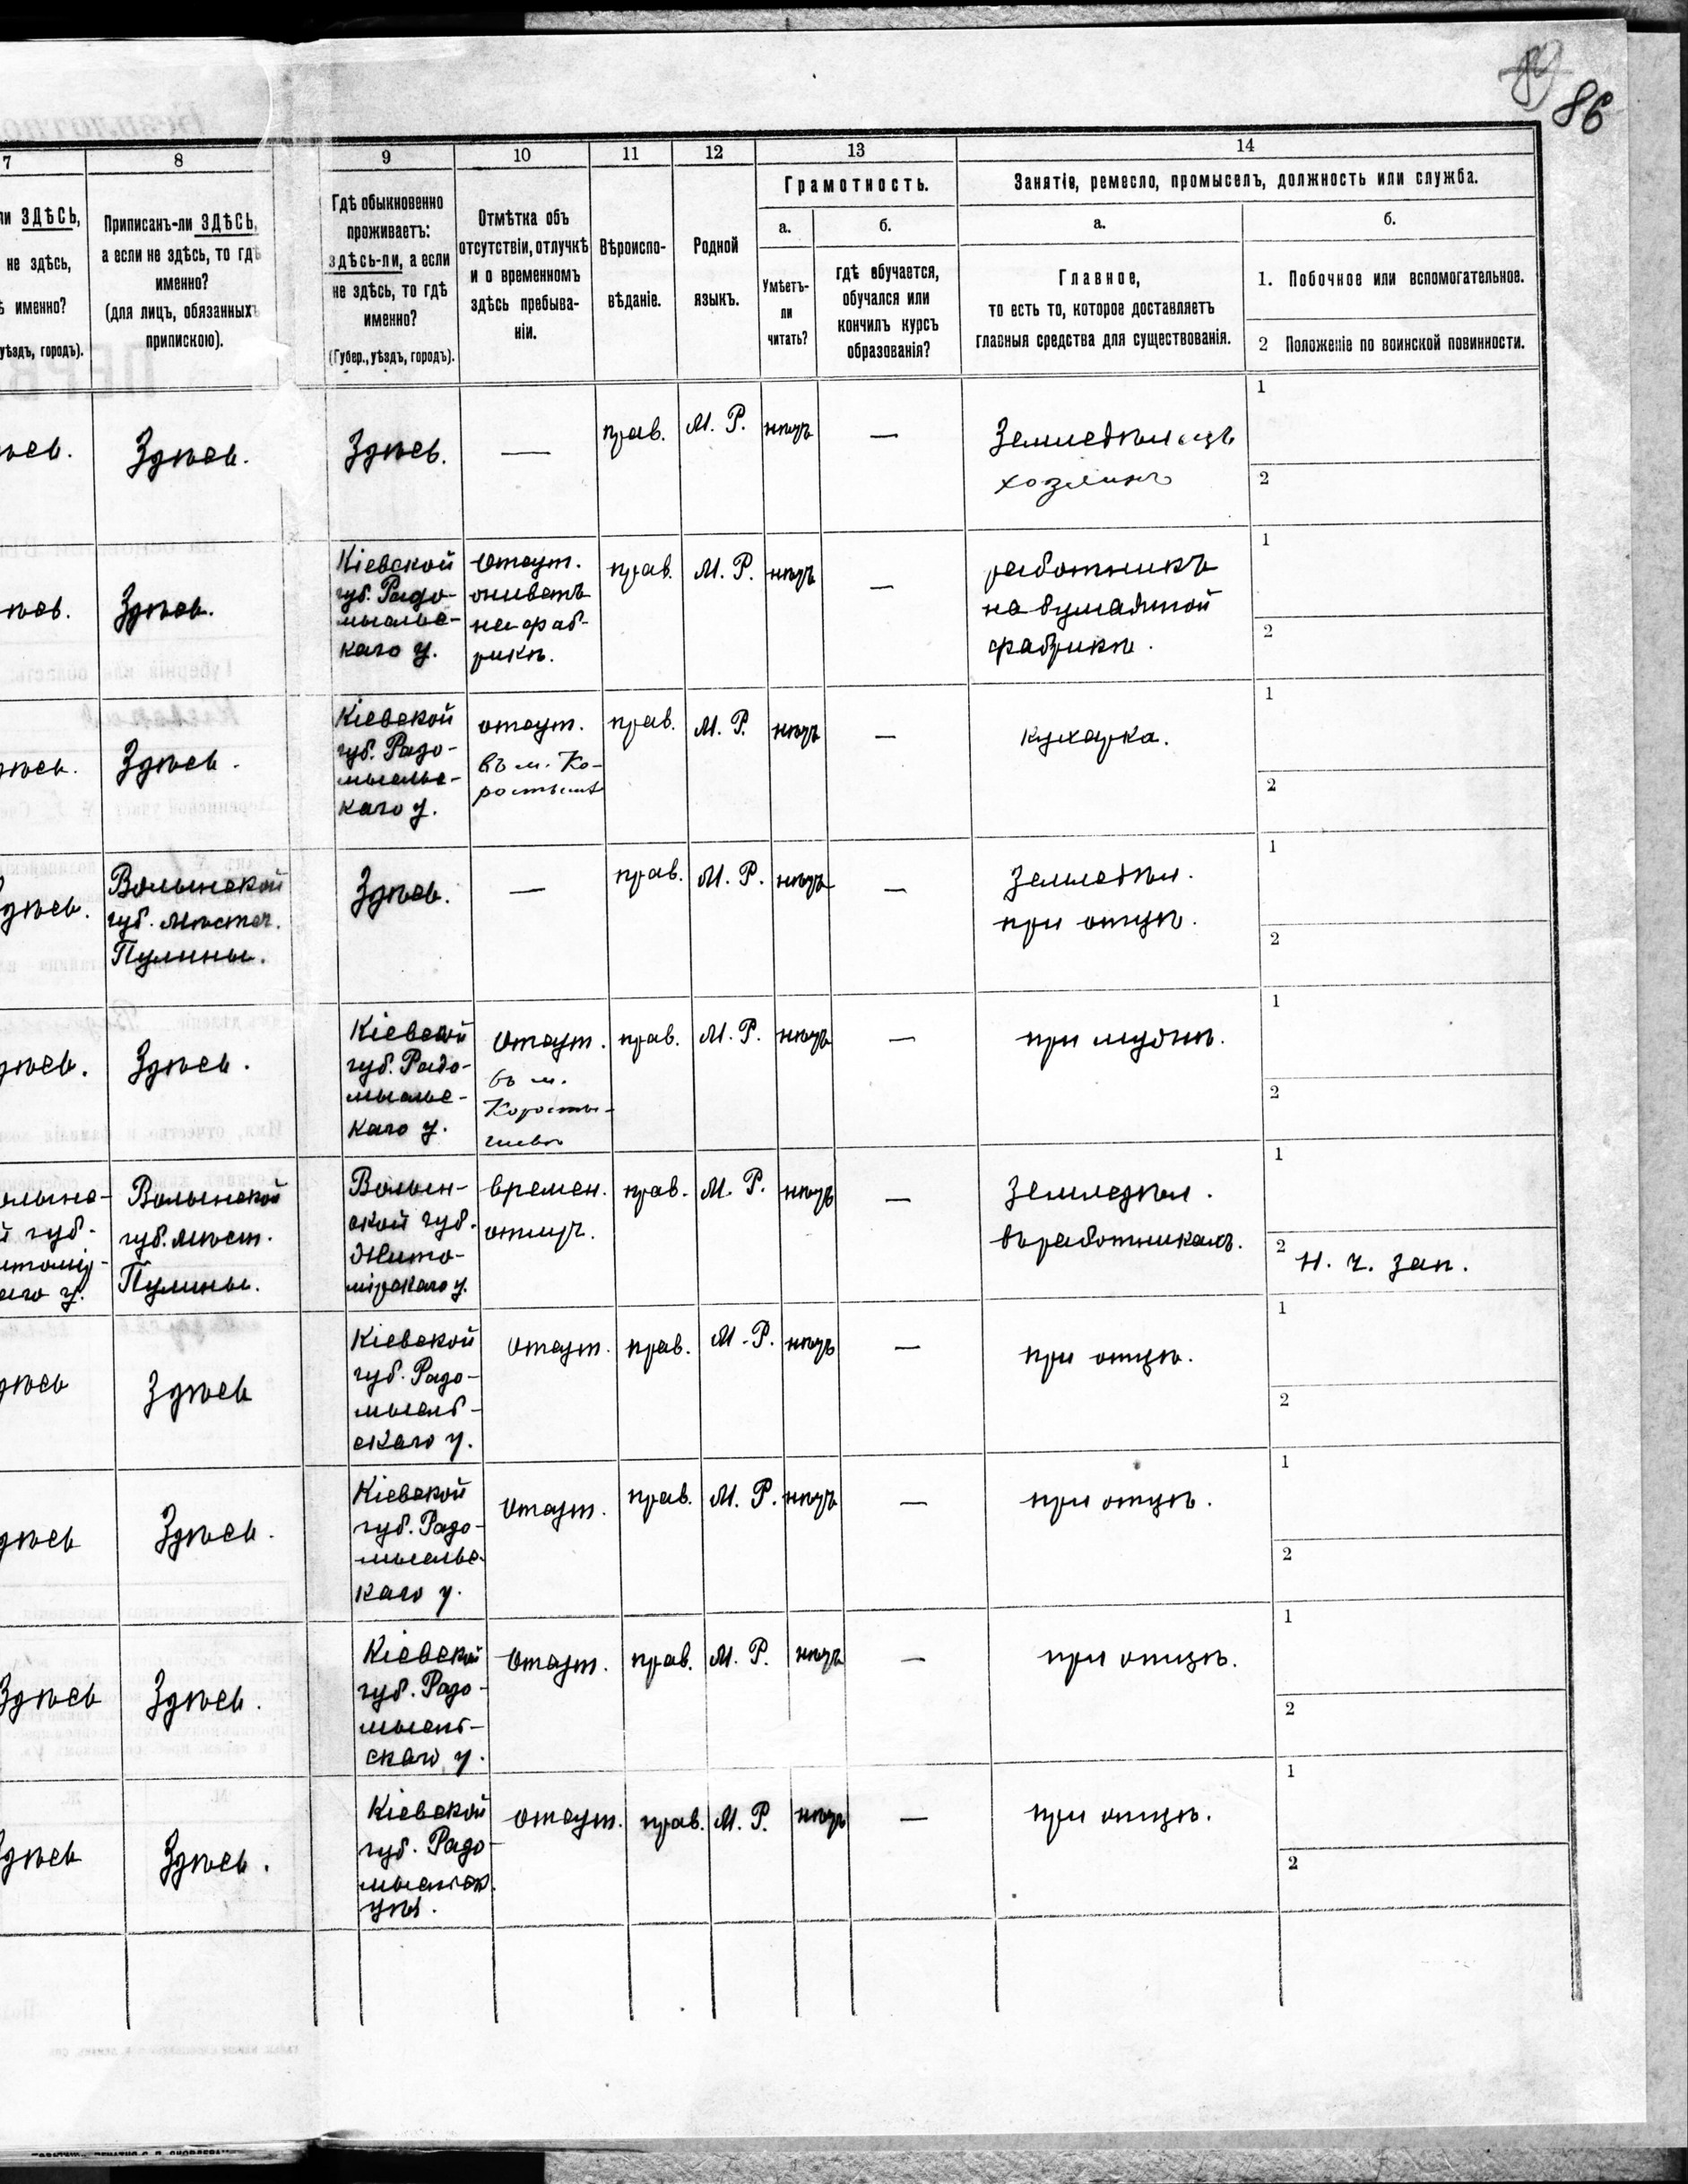 89
86
7
8
9
10
11
12
13
14
ли ЗДѢСЬ,
не здѣсь,
ѣ именно?
уѣздъ, городъ).
Приписанъ-ли ЗДѢСЬ,
а если не здѣсь, то гдѣ
именно?
(для лицъ, обязанныхъ
припискою).
Гдѣ обыкновенно
проживаетъ:
здѣсь-ли, а если
не здѣсь, то гдѣ
именно?
(Губер., уѣздъ, городъ).
Отмѣтка объ
отсутствіи, отлучкѣ
и о временномъ
здѣсь пребыва-
ніи.
Вѣроиспо-
вѣданіе.
Родной
языкъ.
Грамотность.
а.
Умѣетъ-
ли
читать?
б.
гдѣ обучается,
обучался или
кончилъ курсъ
образованія?
Занятіе, ремесло, промыселъ, должность или служба.
а.
Главное,
то есть то, которое доставляетъ
главныя средства для существованія.
б.
1. Побочное или вспомогательное.
2 Положеніе по воинской повинности.
ѣсь.
Здѣсь.
Здѣсь.
—
прав.
М. Р.
нѣтъ
—
Земледѣлецъ
хозяинъ
1
2
ѣсь.
Здѣсь.
Кіевской
губ. Радо-
мысльс-
каго у.
Отсут.
живетъ
на фаб-
рикѣ.
прав.
М. Р.
нѣтъ
—
работникъ
на бумажной
фабрикѣ.
1
2
ѣсь.
Здѣсь.
Кіевской
губ. Радо-
мысльс-
каго у.
отсут.
въ м. Ко-
ростыш
прав.
М. Р.
нѣтъ
—
кухарка.
1
2
дѣсь.
Волынской
губ. Мѣстеч.
Пулины.
Здѣсь.
—
прав.
М. Р.
нѣтъ
—
Земледѣл.
при отцѣ.
1
2
дѣсь.
Здѣсь.
Кіевской
губ. Радо-
мысльс-
каго у.
Отсут.
въ м.
Коросты-
шевѣ
прав.
М. Р.
нѣтъ
—
при мужѣ.
1
2
олынс-
й губ.
итомір-
аго у.
Волынской
губ. Мѣст.
Пулины.
Волын-
ской губ.
Жито-
мірскаго у.
времен.
отлуч.
прав.
М. Р.
нѣтъ
—
Земледѣл.
въ работникахъ.
1
2 Н. ч. зап.
дѣсь
Здѣсь
Кіевской
губ. Радо-
мысль-
скаго у.
Отсут.
прав.
М. Р.
нѣтъ
—
при отцѣ.
1
2
дѣсь
Здѣсь.
Кіевской
губ. Радо-
мысльс-
каго у.
Отсут.
прав.
М. Р.
нѣтъ
—
при отцѣ.
1
2
Здѣсь
Здѣсь.
Кіевской
губ. Радо-
мысль-
скаго у.
Отсут.
прав.
М. Р.
нѣтъ
—
при отцѣ.
1
2
Здѣсь
Здѣсь.
Кіевской
губ. Радо-
мысльск.
уѣз.
отсут.
прав.
М. Р.
нѣтъ
—
при отцѣ.
1
2